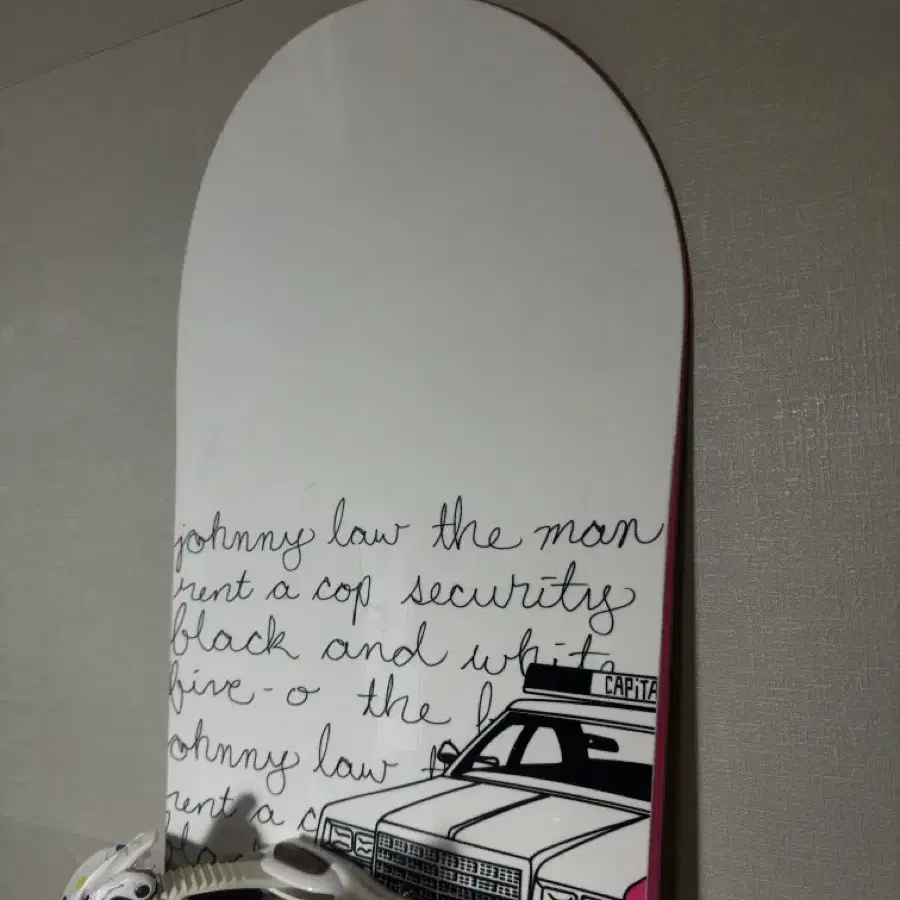 johnny law the man
rent a cop security
black and white
five-o the
CAPITA
johnny law
rent a